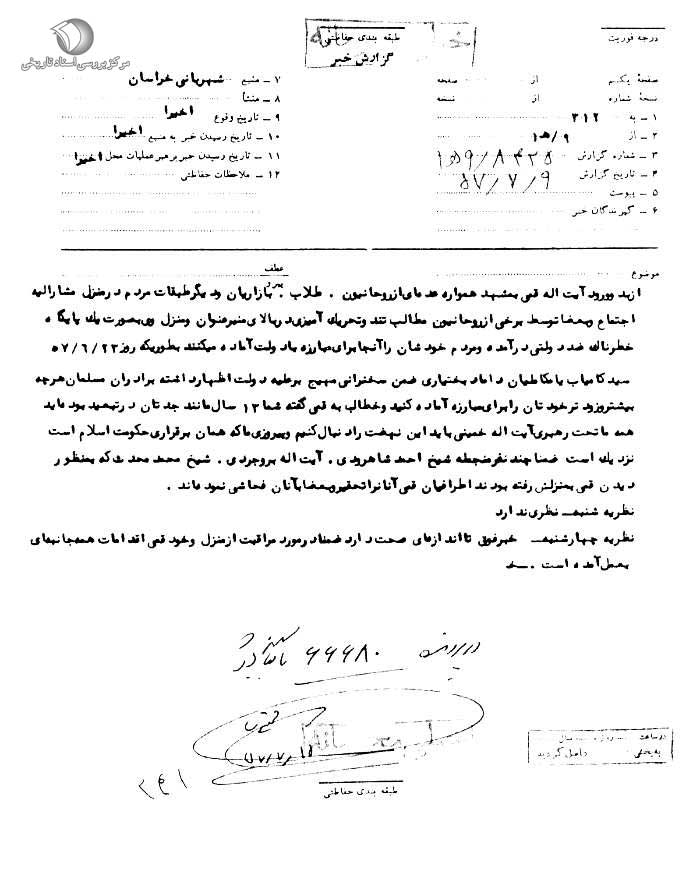 مرکز بررسی اسناد تاریخی
طبقه بندی حفاظتی
گزارش خبر
درجه فوریت
صفحهٔ یکم از صفحه
نسخهٔ شماره از نسخه
۱ – به ۳۱۲
۲ – از ۹/ه۱
۳ – شماره گزارش ۸۴۳۵/۹ه۱
۴ – تاریخ گزارش ۵۷/۷/۹
۵ – پیوست
۶ – گیرندگان خبر
۷ – منبع شهربانی خراسان
۸ – منشأ
۹ – تاریخ وقوع اخیرا
۱۰ – تاریخ رسیدن خبر به منبع اخیرا
۱۱ – تاریخ رسیدن خبر برهبر عملیات محل اخیرا
۱۲ – ملاحظات حفاظتی
موضوع
عطف
از بدو ورود آیت اله قمی بمشهد همواره عده‌ای از روحانیون . طلاب . بازاریان و دیگر طبقات مردم در منزل مشارالیه
اجتماع و بعضا توسط برخی از روحانیون مطالب تند و تحریک آمیزی در بالای منبر عنوان و منزل وی بصورت یك پایگاه
خطرناك ضد دولتی در آمده و مردم خود شان را آنجا برای مبارزه با دولت آماده میکنند بطوریکه روز ۵۷/۶/۲۳
سید کامیاب یا مکاطبان داماد بختیاری ضمن سخنرانی مهیج بر علیه دولت اظهار داشته برادران مسلمان هرچه
بیشتر و زود تر خود تان را برای مبارزه آماده کنید و خطاب به قمی گفته شما ۱۳ سال مانند جد تان در تبعید بود ماید
همه ما تحت رهبری آیت اله خمینی باید این نهضت را دنبال کنیم و پیروزی ما که همان برقراری حکومت اسلام است
نزدیك است ضمنا چند نفر منجمله شیخ احمد شاهرودی . آیت اله بروجردی . شیخ محمد محدث که بمنظور
دیدن قمی بمنزلش رفته بودند اطرافیان قمی آنانرا تحقیر و بعضا بآنان فحاشی نموده اند .
نظریه شنبه – نظری ندارد
نظریه چهارشنبه – خبر فوق تا اندازه‌ای صحت دارد ضمنا در مورد مراقبت از منزل و خود قمی اقدامات همه جانبه‌ای
بعمل آمده است .
در پرونده ۶۶۶۸۰
۵۷/۷/۱۵
طبقه بندی حفاظتی
در ساعت روز سال
به بخش واصل گردید